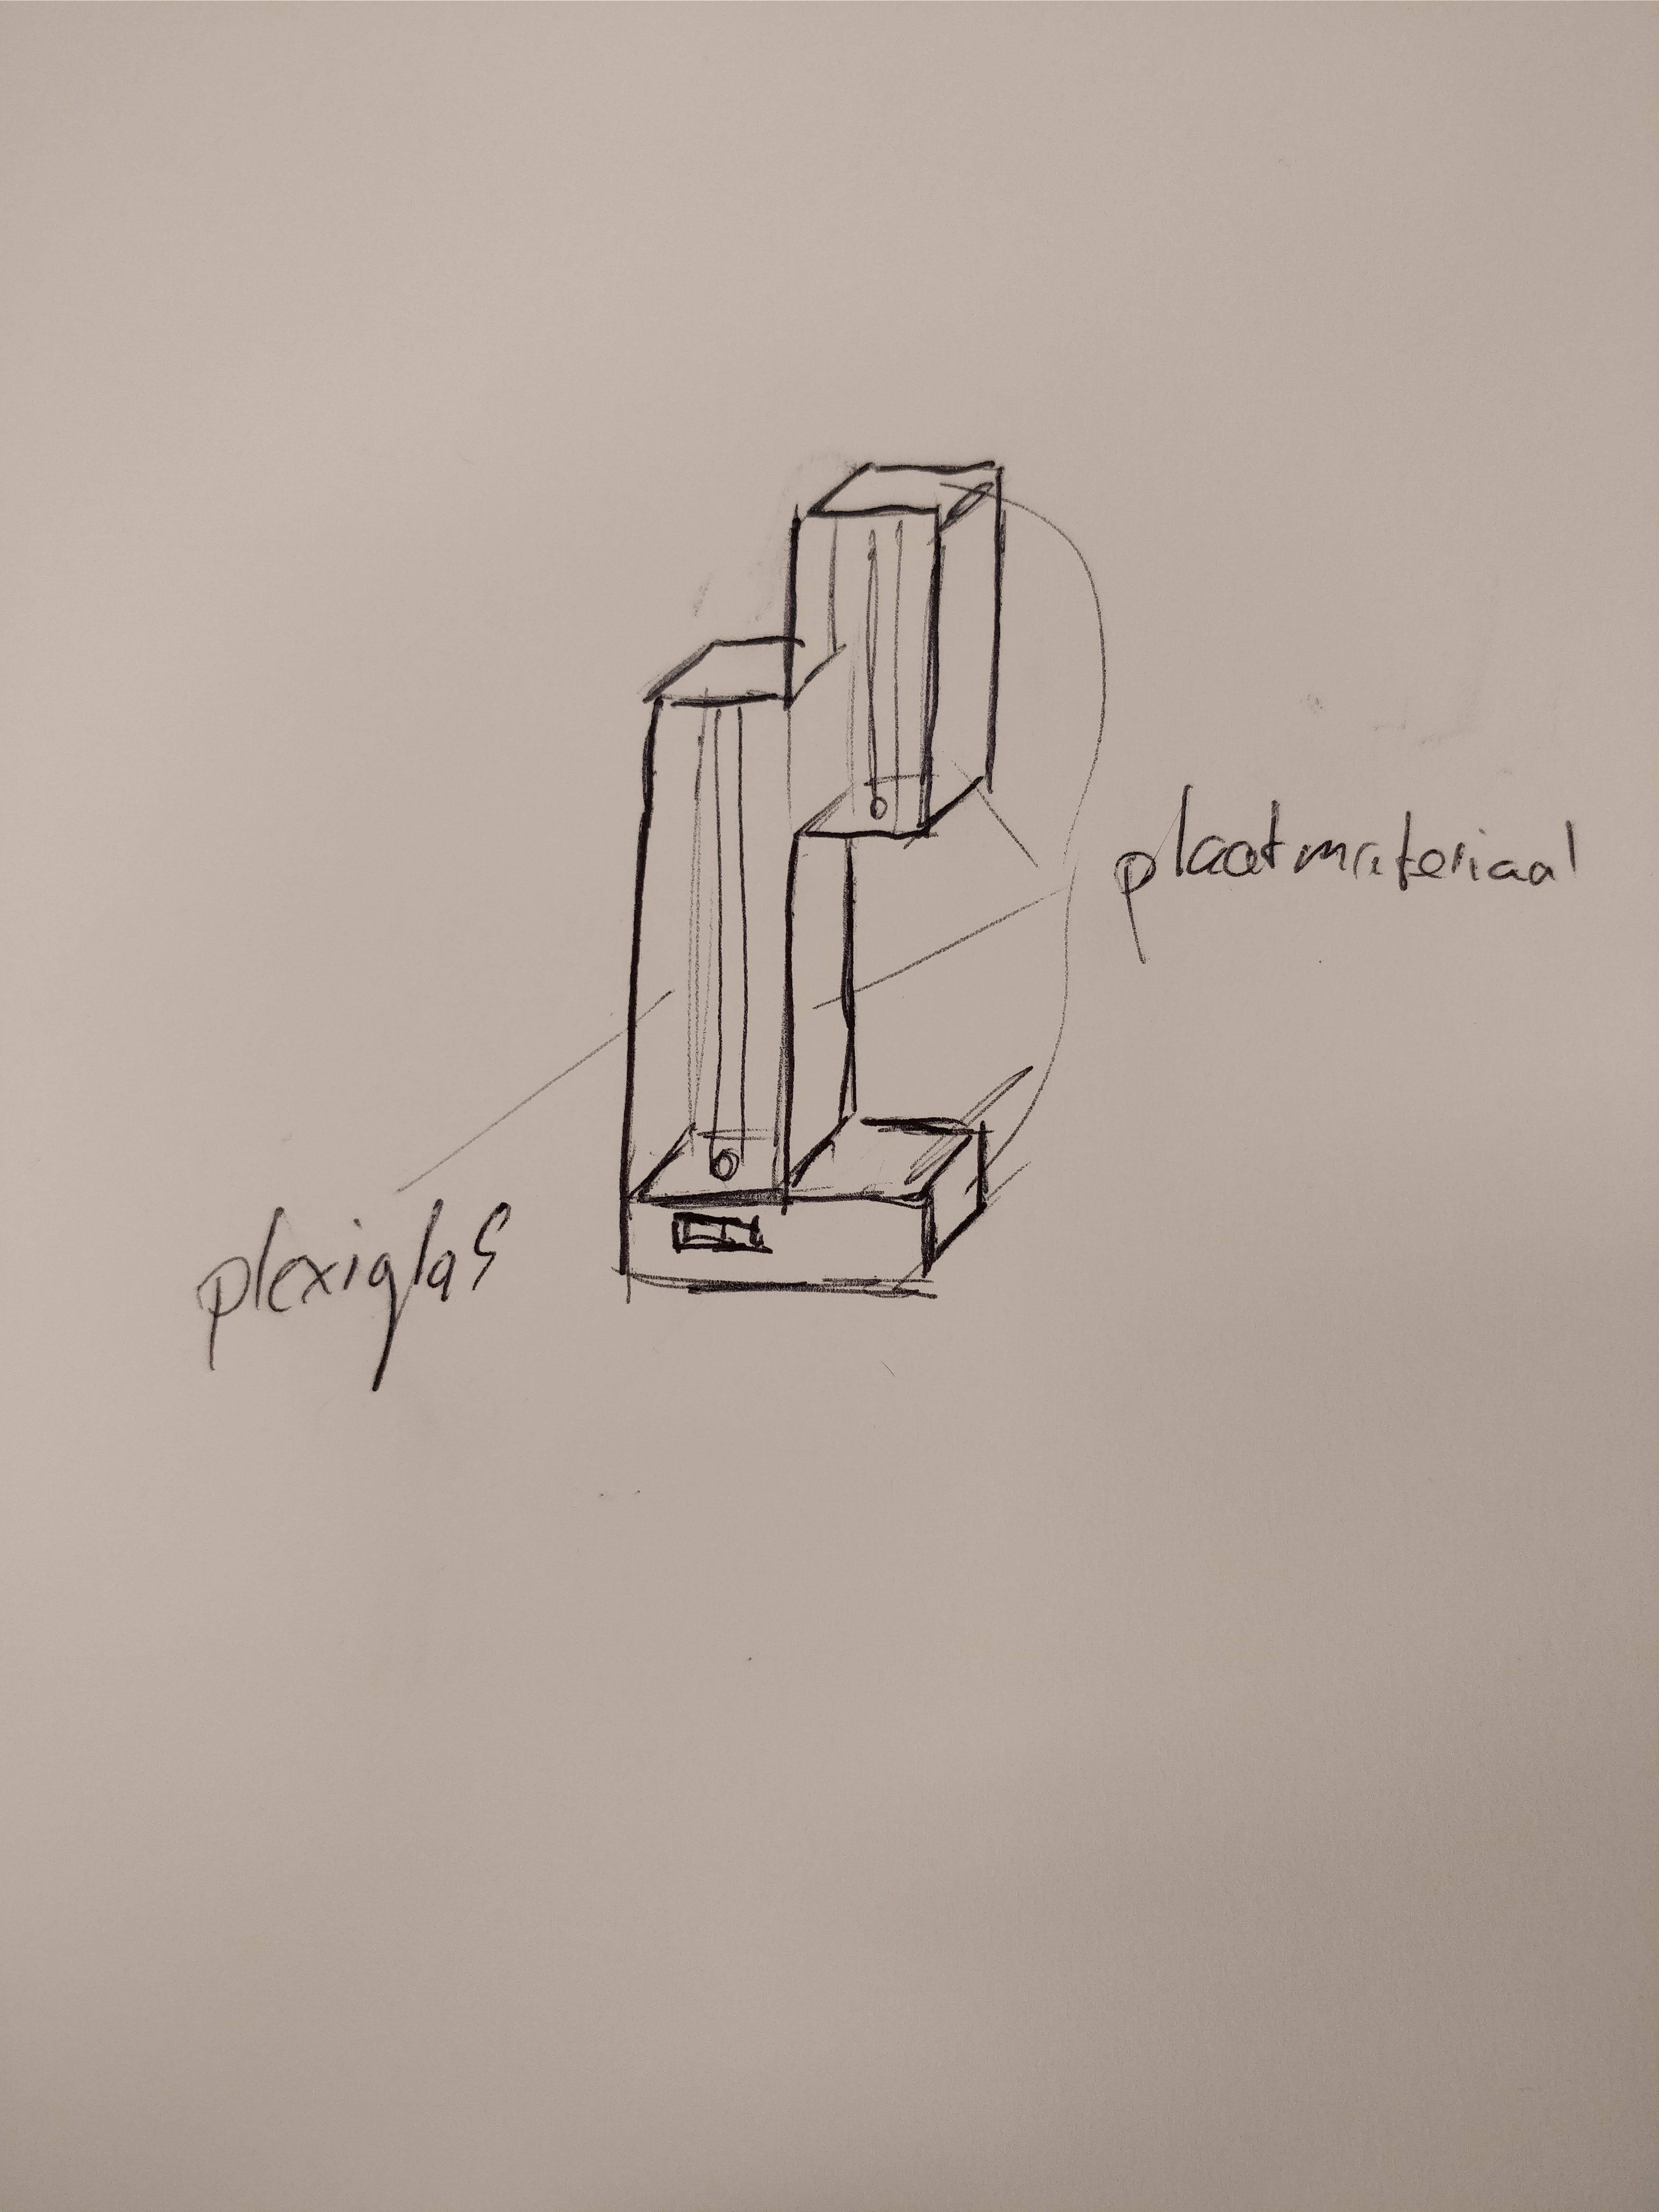 plaatmateriaal
plexiglas